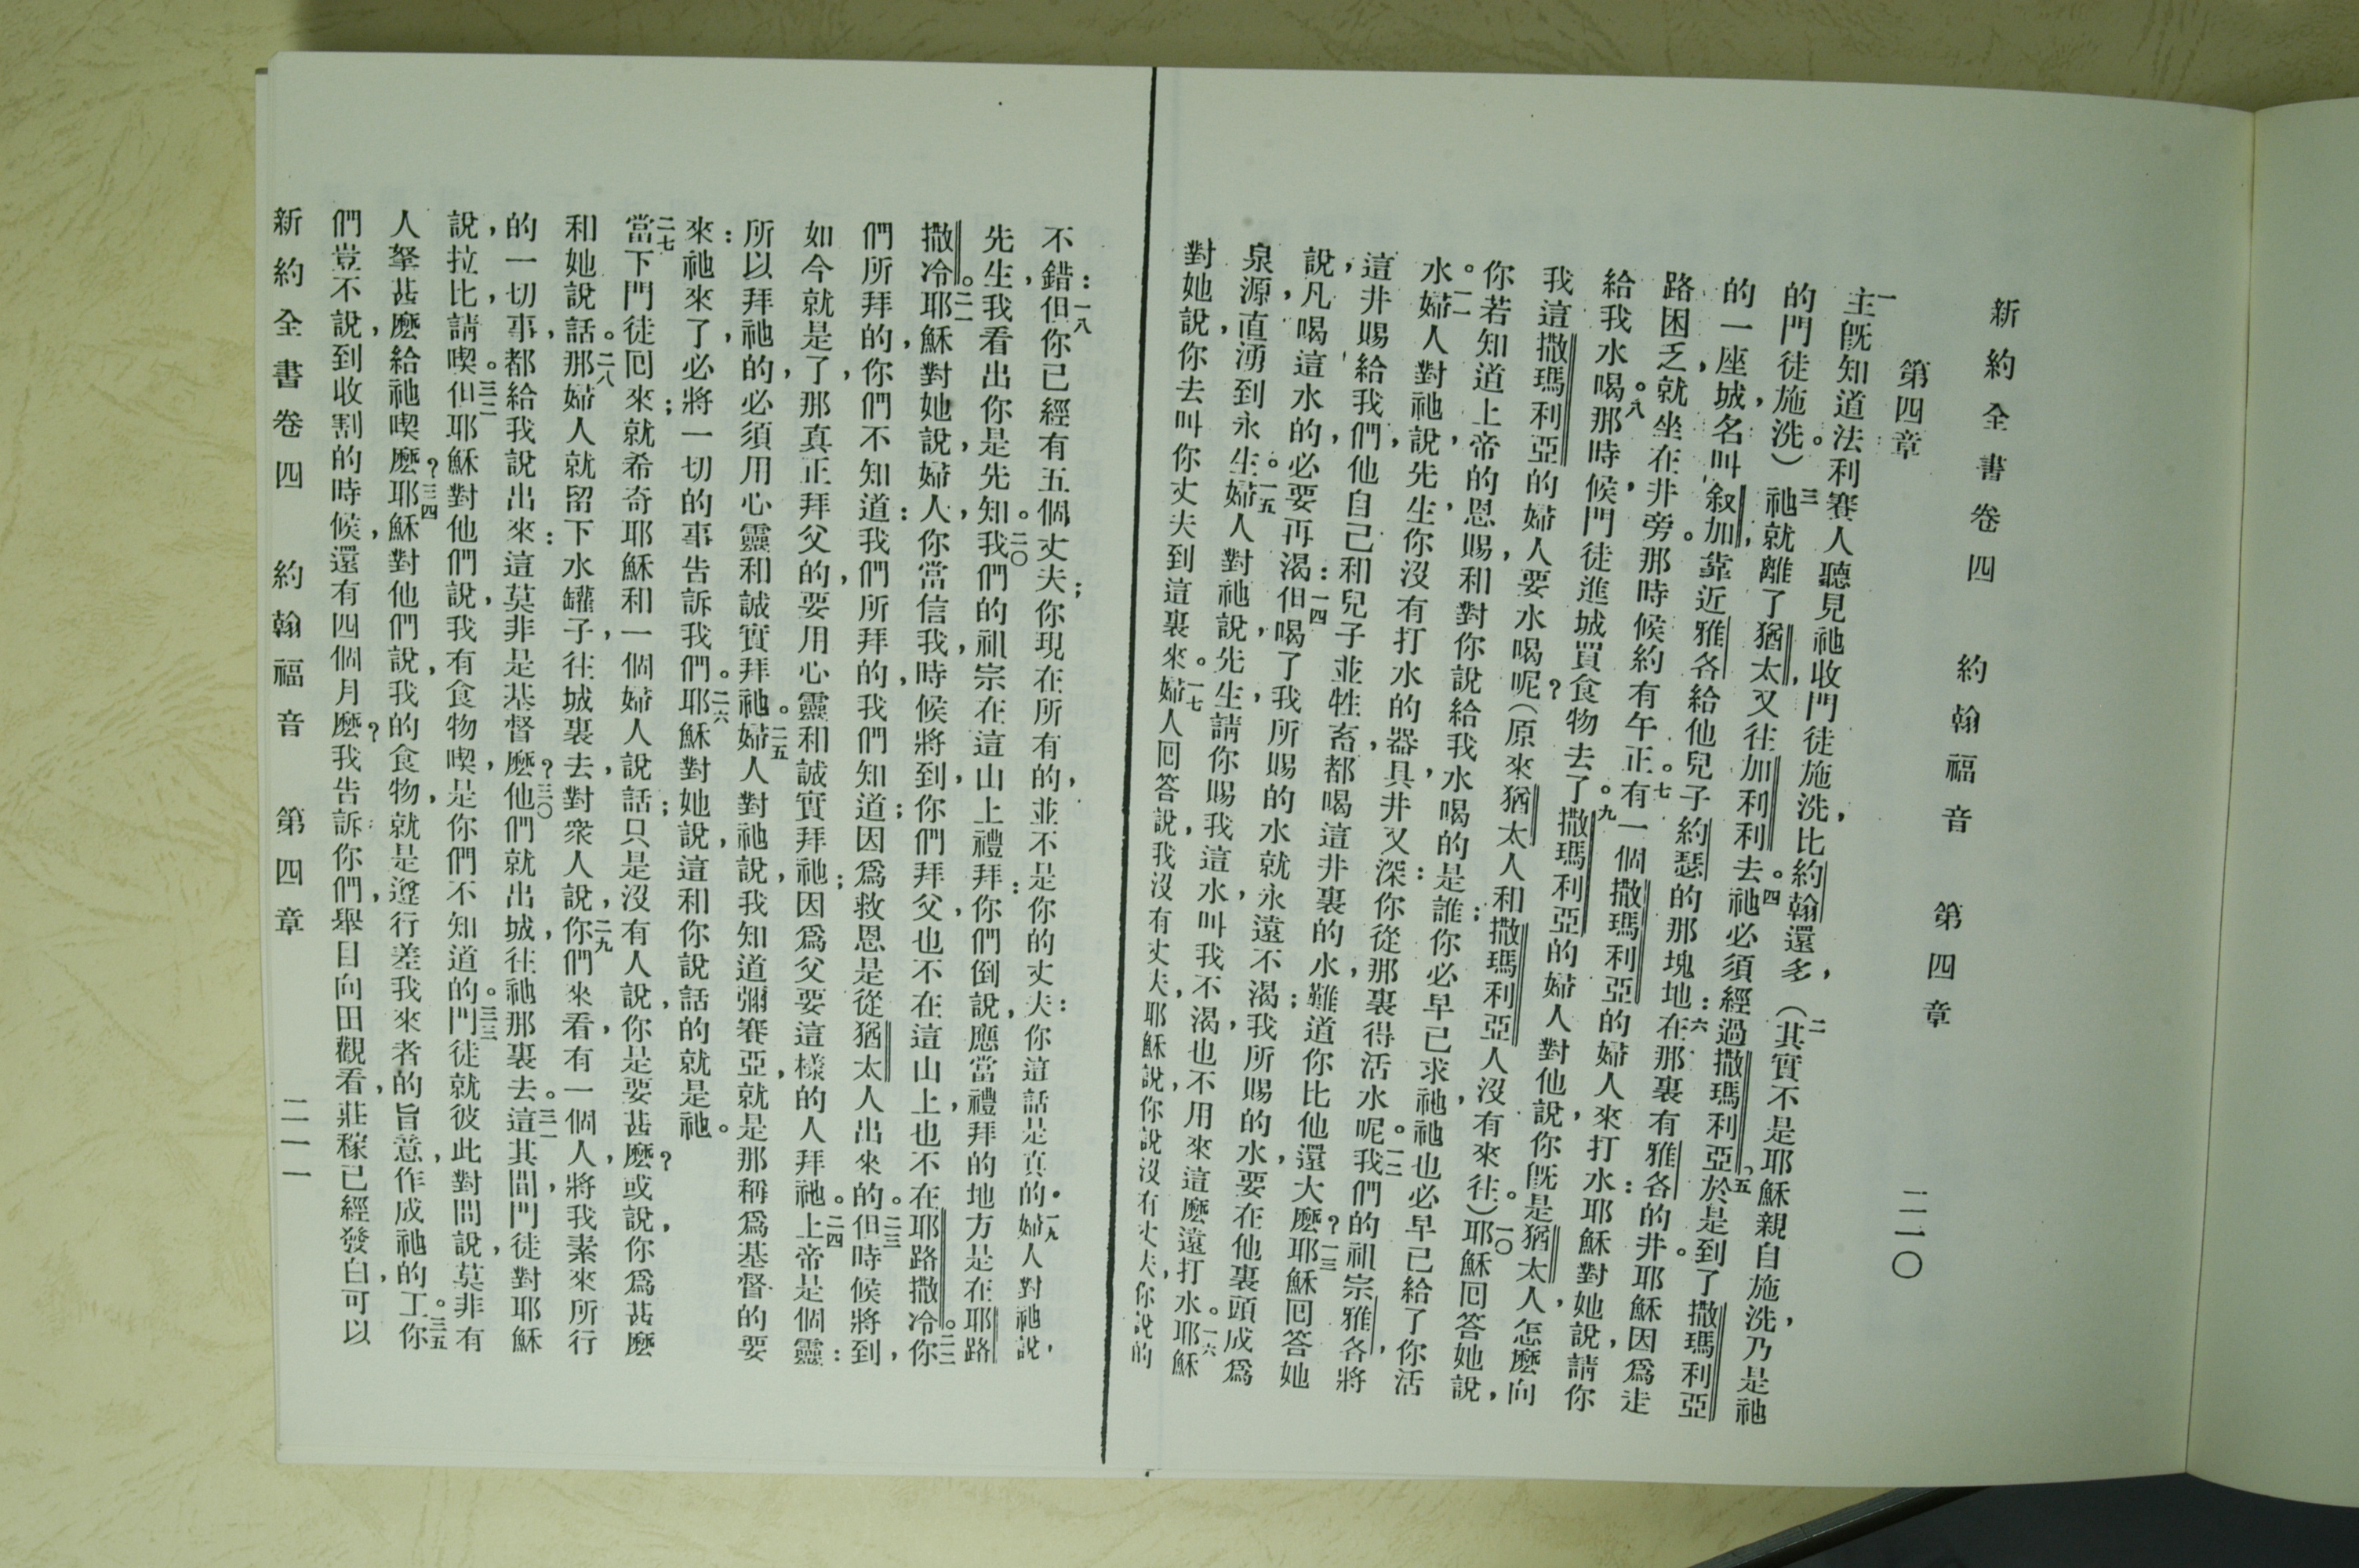 新約全書卷四 約翰福音 第四章 二一〇
第四章
一主旣知道法利賽人聽見祂收門徒施洗,比約翰還多,(二其實不是耶穌親自施洗,乃是祂
的門徒施洗。)三祂就離了猶太,又往加利利去。四祂必須經過撒瑪利亞。五於是到了撒瑪利亞
的一座城,名叫叙加,靠近雅各給他兒子約瑟的那塊地:六在那裏有雅各的井。耶穌因爲走
路困乏,就坐在井旁。那時候約有午正。七有一個撒瑪利亞的婦人來打水:耶穌對她說,請你
給我水喝。八那時候,門徒進城買食物去了。九撒瑪利亞的婦人對他說,你旣是猶太人,怎麼向
我這撒瑪利亞的婦人要水喝呢?(原來猶太人和撒瑪利亞人沒有來往。)一〇耶穌囘答她說,
你若知道上帝的恩賜,和對你說給我水喝的是誰;你必早已求祂,祂也必早已給了你活
水。一一婦人對祂說,先生,你沒有打水的器具,井又深:你從那裏得活水呢。一二我們的祖宗雅各,將
這井賜給我們,他自己和兒子並牲畜,都喝這井裏的水,難道你比他還大麼?一三耶穌囘答她
說,凡喝這水的,必要再渴:一四但喝了我所賜的水,就永遠不渴;我所賜的水,要在他裏頭成爲
泉源,直湧到永生。一五婦人對祂說,先生,請你賜我這水,叫我不渴,也不用來這麼遠打水。一六耶穌
對她說,你去叫你丈夫到這裏來。一七婦人囘答說,我沒有丈夫,耶穌說,你說沒有丈夫,你說的
不錯:一八但你已經有五個丈夫;你現在所有的,並不是你的丈夫:你這話是真的。一九婦人對祂說,
先生,我看出你是先知。二〇我們的祖宗在這山上禮拜:你們倒說,應當禮拜的地方是在耶路
撒冷。二一耶穌對她說,婦人,你當信我,時候將到,你們拜父,也不在這山上,也不在耶路撒冷。二二你
們所拜的,你們不知道:我們所拜的,我們知道;因爲救恩是從猶太人出來的。二三但時候將到,
如今就是了,那真正拜父的,要用心靈和誠實拜祂;因爲父要這樣的人拜祂。二四上帝是個靈:
所以拜祂的,必須用心靈和誠實拜祂。二五婦人對祂說,我知道彌賽亞,就是那稱爲基督的要
來:祂來了,必將一切的事告訴我們。二六耶穌對她說,這和你說話的就是祂。
二七當下門徒囘來,就希奇耶穌和一個婦人說話;只是沒有人說,你是要甚麼?或說,你爲甚麼
和她說話。二八那婦人就留下水罐子,往城裏去,對衆人說,二九你們來看,有一個人,將我素來所行
的一切事,都給我說出來:這莫非是基督麼?三〇他們就出城,往祂那裏去。三一這其間,門徒對耶穌
說,拉比,請喫。三二但耶穌對他們說,我有食物喫,是你們不知道的。三三門徒就彼此對問說,莫非有
人拏甚麼給祂喫麼?三四耶穌對他們說,我的食物,就是遵行差我來者的旨意,作成祂的工。三五你
們豈不說,到收割的時候,還有四個月麼?我告訴你們,舉目向田觀看,莊稼已經發白,可以
新約全書卷四 約翰福音 第四章 二一一